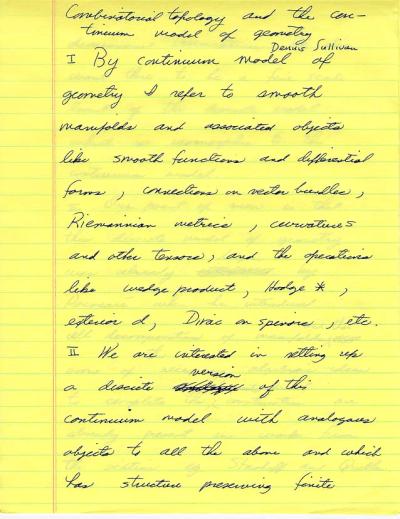 Combinatorial topology and the con-
tinuum model of geometry
Dennis Sullivan
I By continuum model of
geometry I refer to smooth
manifolds and associated objects
like smooth functions and differential
forms, connections on vector bundles,
Riemannian metrics, curvatures
and other tensors, and the operations
like wedge product, Hodge *,
exterior d, Dirac on spinors, etc.
II We are interested in setting up
a discrete version of this
continuum model with analogous
objects to all the above and which
has structure preserving finite